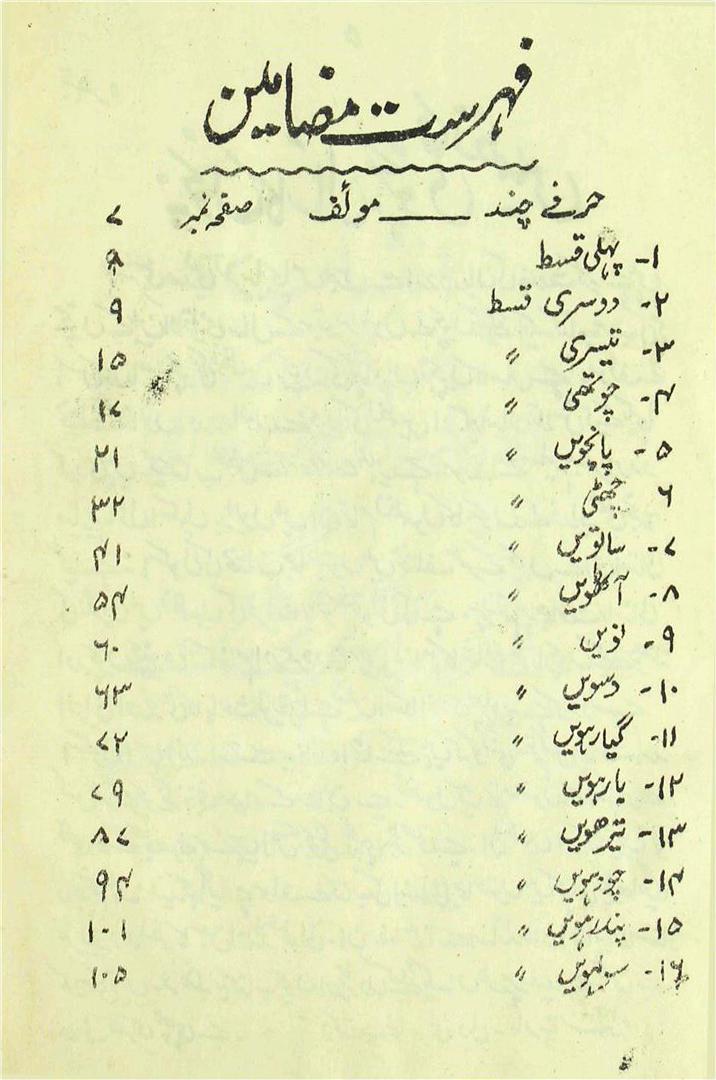 فہرست مضامین
حرفے چند ——— مولف صفحہ نمبر ۷
۱- پہلی قسط ۸
۲- دوسری قسط ۹
۳- تیسری 〃 ۱۵
۴- چوتھی 〃 ۱۷
۵- پانچویں 〃 ۲۱
۶ چھٹی 〃 ۳۲
۷- ساتویں 〃 ۴۱
۸- آٹھویں 〃 ۵۴
۹- نویں 〃 ۶۰
۱۰- دسویں 〃 ۶۳
۱۱- گیارہویں 〃 ۷۲
۱۲- بارہویں 〃 ۷۹
۱۳- تیرھویں 〃 ۸۷
۱۴- چودہویں 〃 ۹۴
۱۵- پندرہویں 〃 ۱۰۱
۱۶- سولہویں 〃 ۱۰۵